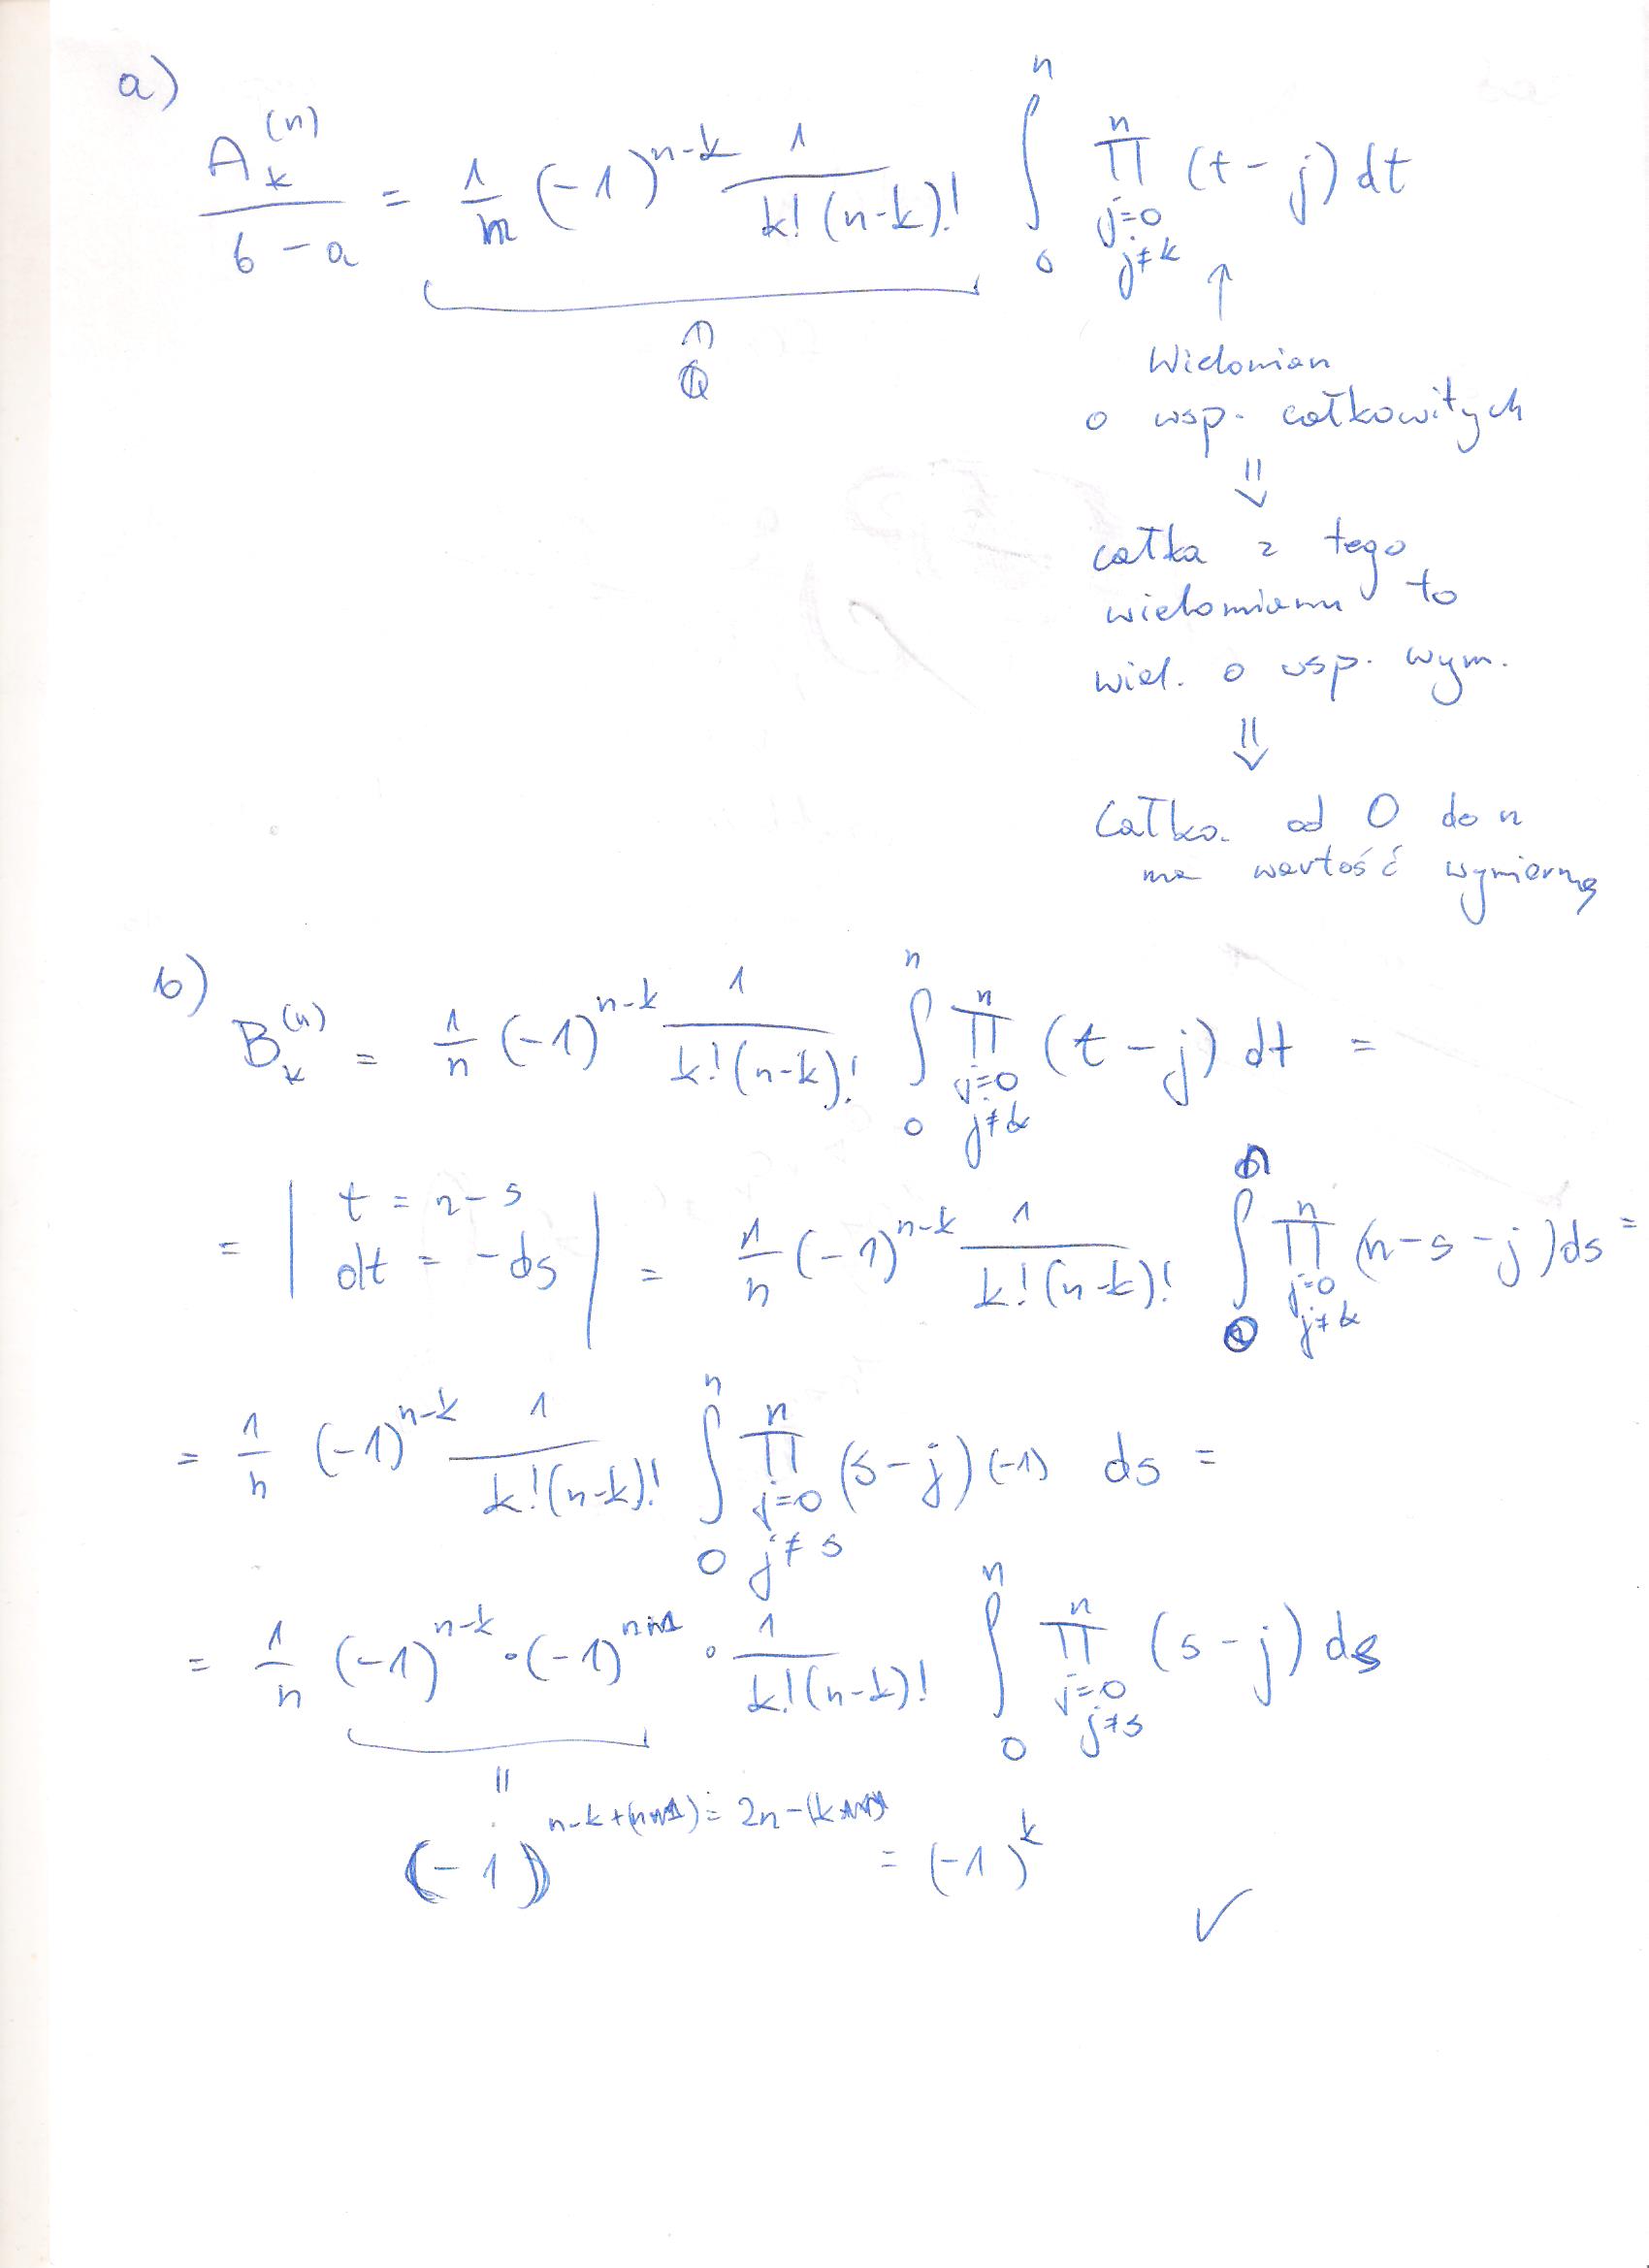 a)
A_k^(n) / (b - a) = 1/n (-1)^(n-k) 1/(k!(n-k)!) ∫_0^n ∏_{j=0, j≠k}^n (t - j) dt
∈ Q
↑
Wielomian
o wsp. całkowitych
⇓
całka z tego
wielomianu to
wiel. o wsp. wym.
⇓
Całka od 0 do n
ma wartość wymierną
b)
B_k^(n) = 1/n (-1)^(n-k) 1/(k!(n-k)!) ∫_0^n ∏_{j=0, j≠k}^n (t - j) dt =
= | t = n - s
dt = -ds | = 1/n (-1)^(n-k) 1/(k!(n-k)!) ∫_0^n ∏_{j=0, j≠k}^n (n - s - j) ds =
= 1/n (-1)^(n-k) 1/(k!(n-k)!) ∫_0^n ∏_{j=0, j≠s}^n (s - j) (-1) ds =
= 1/n (-1)^(n-k) · (-1)^n · 1/(k!(n-k)!) ∫_0^n ∏_{j=0, j≠s}^n (s - j) ds
=
(-1)^(n-k+(n) = 2n-(k) = (-1)^k
✓